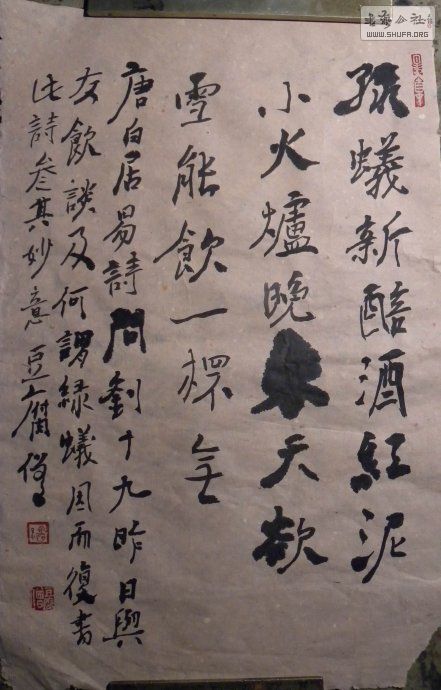 綠蟻新醅酒紅泥
小火爐晚來天欲
雪能飲一杯無
唐白居易詩問劉十九昨日與
友飲談及何謂綠蟻因而復書
此詩參其妙意豆腐僧
书法公社
WWW.SHUFA.ORG